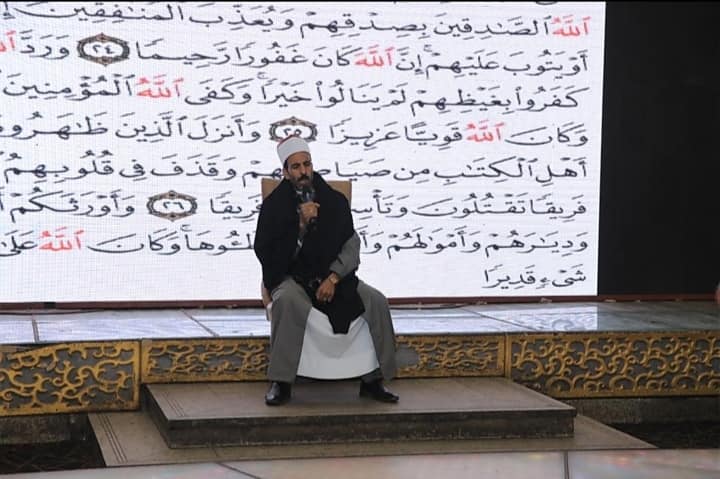 ٱللَّهُ ٱلصَّٰدِقِينَ بِصِدْقِهِمْ وَيُعَذِّبَ ٱلْمُنَٰفِقِينَ
أَوْ يَتُوبَ عَلَيْهِمْ ۚ إِنَّ ٱللَّهَ كَانَ غَفُورًا رَّحِيمًا ٢٤ وَرَدَّ
كَفَرُوا۟ بِغَيْظِهِمْ لَمْ يَنَالُوا۟ خَيْرًا ۚ وَكَفَى ٱللَّهُ ٱلْمُؤْمِنِينَ
وَكَانَ ٱللَّهُ قَوِيًّا عَزِيزًا ٢٥ وَأَنزَلَ ٱلَّذِينَ
أَهْلِ ٱلْكِتَٰبِ مِن وَقَذَفَ فِى قُلُوبِهِمُ
فَرِيقًا تَقْتُلُونَ فَرِيقًا ٢٦ وَأَوْرَثَكُمْ
وَدِيَٰرَهُمْ وَأَمْوَٰلَهُمْ وَكَانَ ٱللَّهُ عَلَىٰ
شَىْءٍ قَدِيرًا